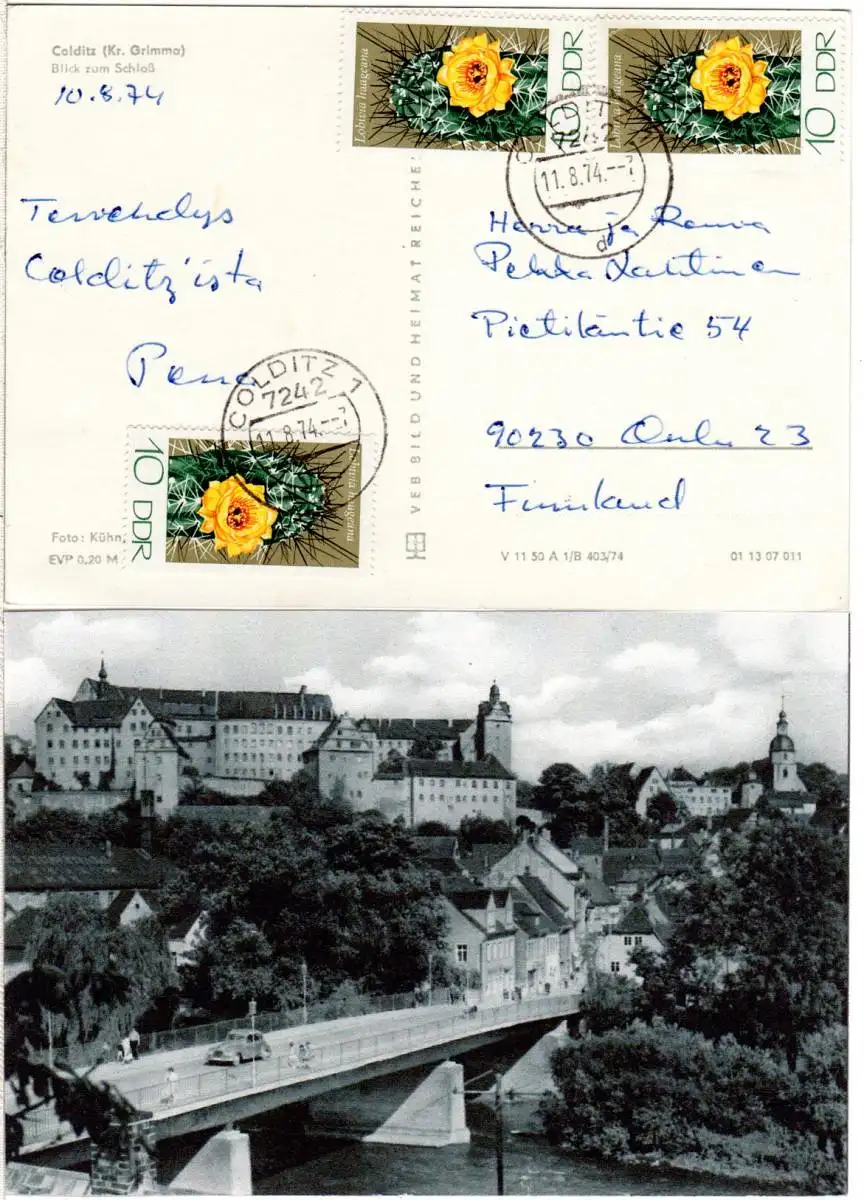 Colditz (Kr. Grimma)
Blick zum Schloß
10.8.74
Tervehdys
Colditz'ista
Pena
Foto: Kühn,
EVP 0,20 M
VEB BILD UND HEIMAT REICHE
Lobivia haageana
10 DDR
Lobivia haageana
10 DDR
COLDITZ
7242
11.8.74.--7
d
Herra ja Rouva
Pekka Lahtinen
Pietiläntie 54
90230 Oulu 23
Finnland
COLDITZ 1
7242
11.8.74.--7
10 DDR
Lobivia haageana
V 11 50 A 1/B 403/74
01 13 07 011